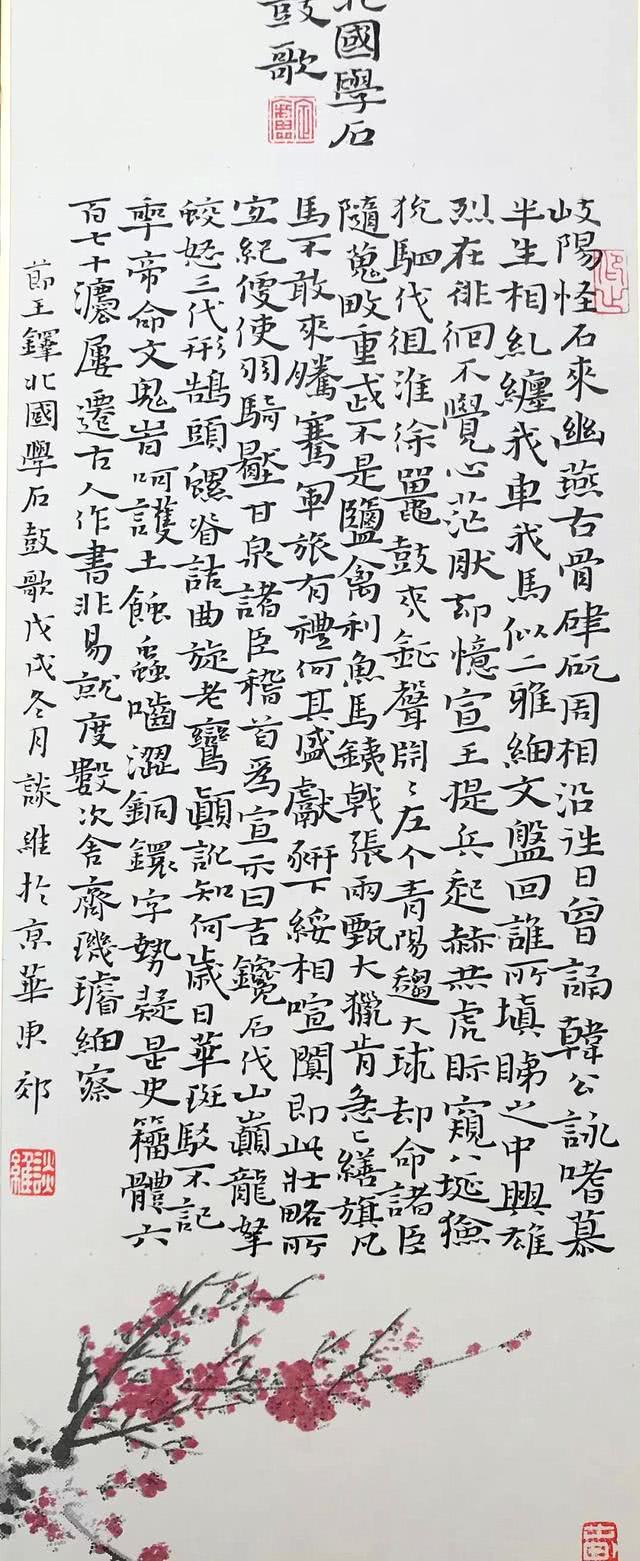 北國學石
鼓歌
岐陽怪石來幽燕古骨硉矹周相沿誰日曾誦韓公詠嗜慕
半生相糺纏我車我馬似二雅細文盤回誰所填睇之中興雄
烈在徘徊不覺心茫肰却憶宣王提兵起赫然虎眎窺八埏獫
狁駟伐徂淮徐鼍鼓夾鉦聲闐〻左个青陽大球却命諸臣
隨蒐畋重戎此不是鹽禽利魚馬銕戟張兩甄大獵肯急亡繕旗凡
馬不敢來騰騫軍旅有禮何其盛獻豜下綏相喧闐即此壯略所
宜紀使羽騎甘泉諸臣稽首為宣示曰吉鑱石代山巔龍拏
蛟怒三代形鵠頭螺詰曲旋老鸞顛訛知何歲日華斑駁不記
年帝命文鬼皆呵護土蝕蟲嚙澀銅鐶字勢疑是史籀體六
百七十灋屢遷古人作書非易就度數次舍齊璣璿細察
節王鐸北國學石鼓歌戊戌冬月談維於京華東郊
談維